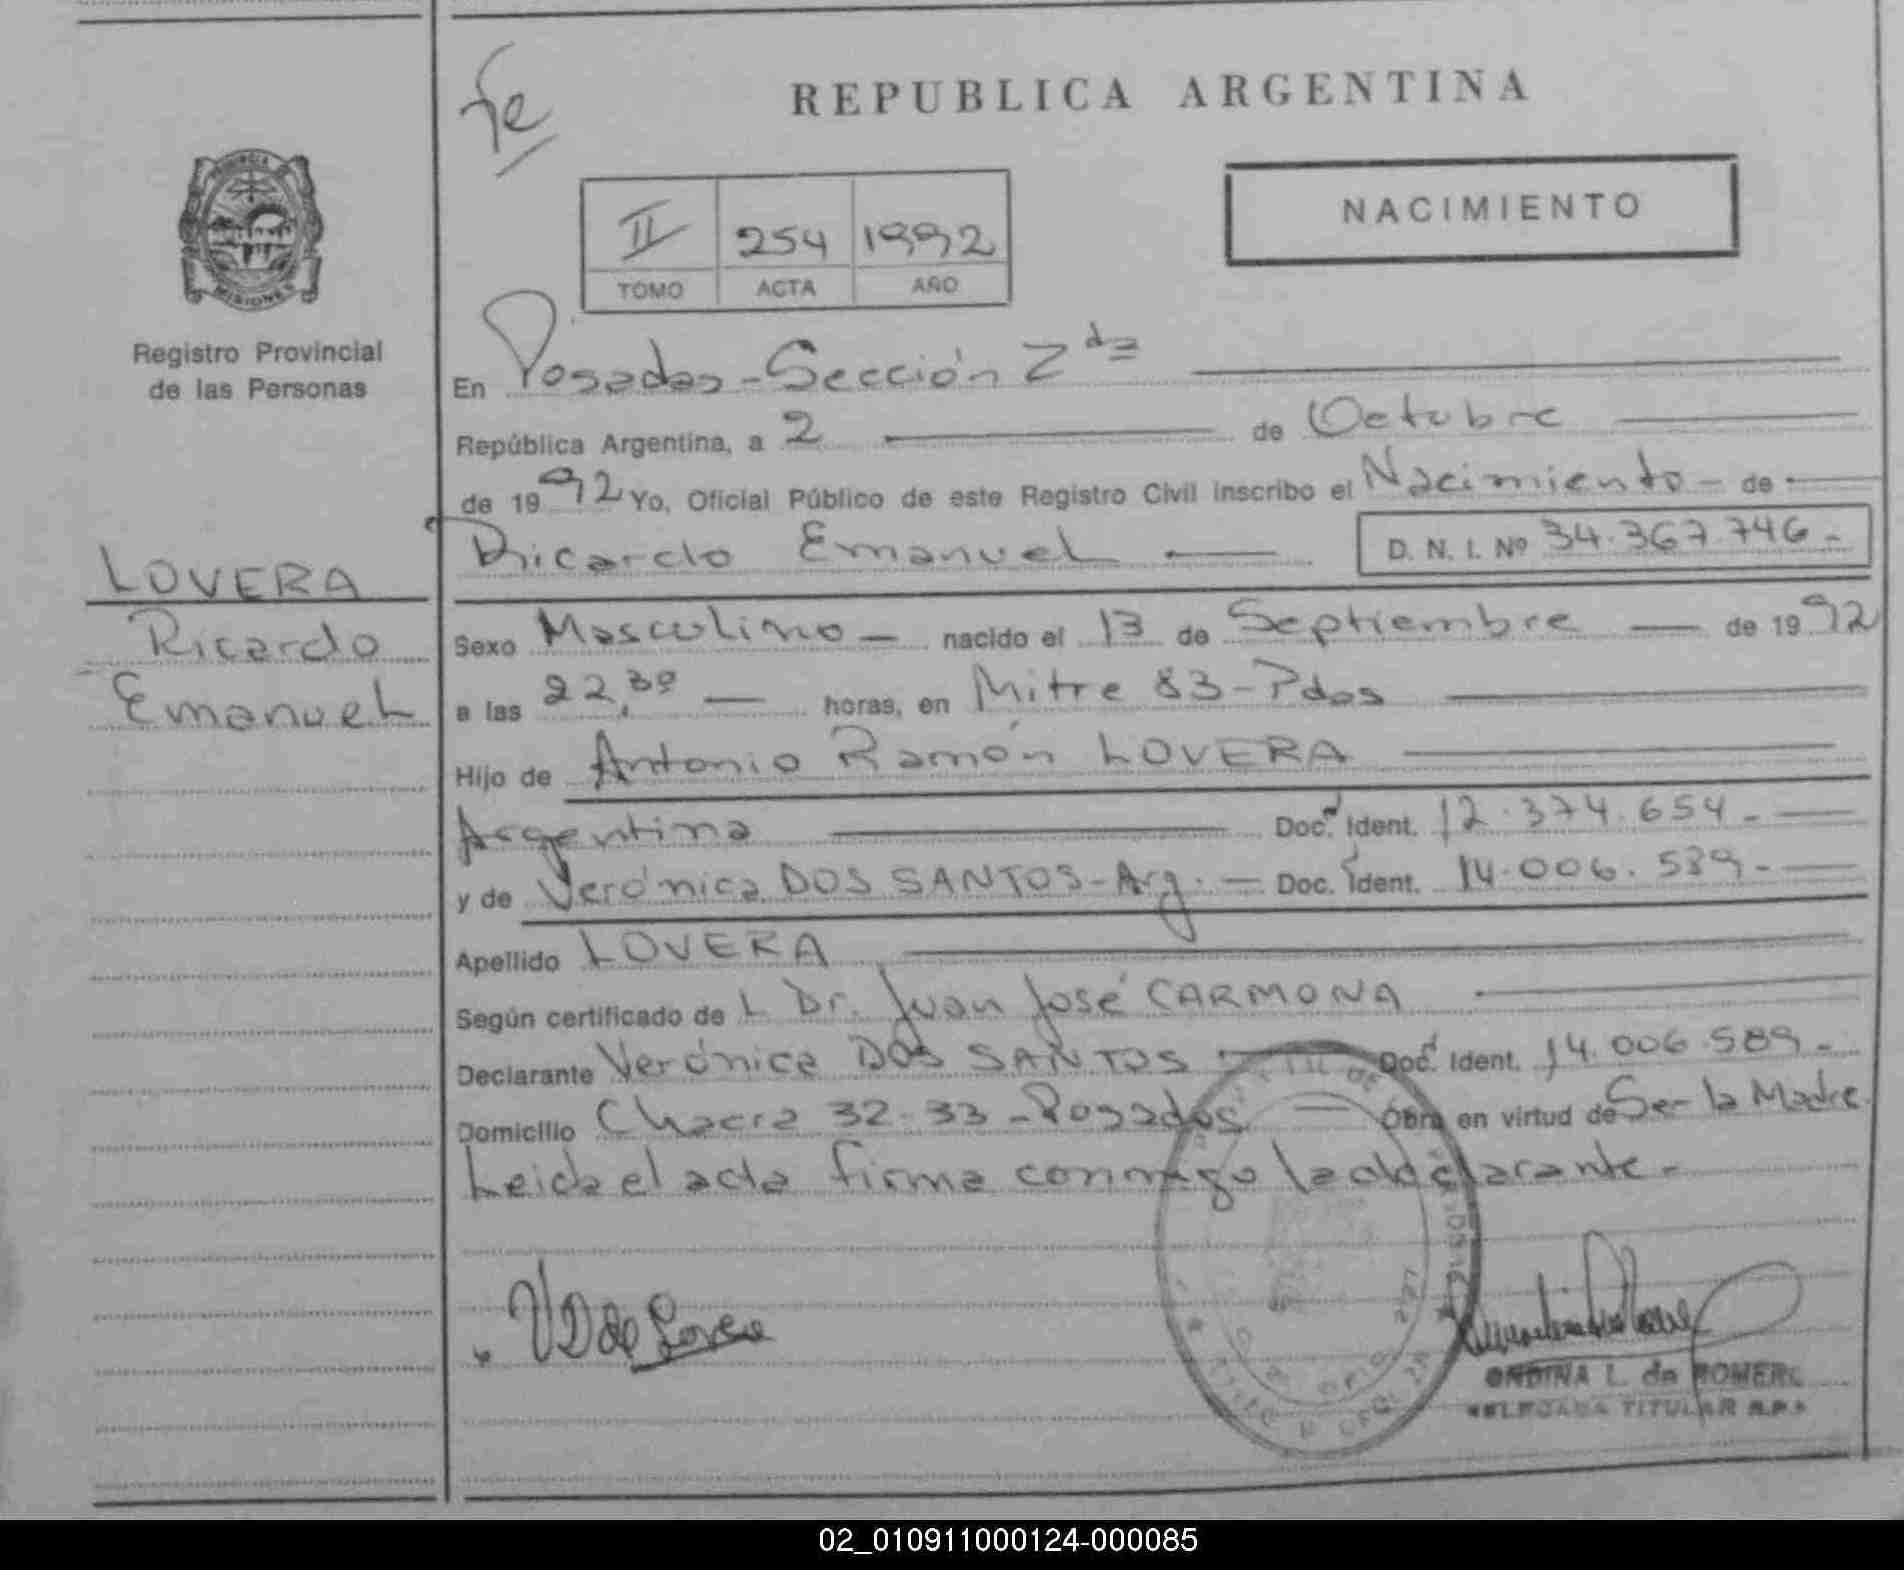 REPUBLICA ARGENTINA
NACIMIENTO
II 254 1992
TOMO ACTA AÑO
PROVINCIA
MISIONES
Registro Provincial
de las Personas
LOVERA
Ricardo
Emanuel
En Posadas - Sección 2da
República Argentina, a 2 de Octubre
de 1992 Yo, Oficial Público de este Registro Civil inscribo el Nacimiento - de
Ricardo Emanuel D. N. I. Nº 34.367.746.-
Sexo Masculino - nacido el 13 de Septiembre de 1992
a las 22,30 horas, en Mitre 83 - Pdas
Hijo de Antonio Ramón LOVERA
Argentina Doc. Ident. 12.374.654.-
y de Verónica DOS SANTOS - Arg. - Doc. Ident. 14.006.589.-
Apellido LOVERA
Según certificado de L Dr. Juan José CARMONA
Declarante Verónica DOS SANTOS - Doc. Ident. 14.006.589.-
Domicilio Chacra 32-33 - Posadas - Obra en virtud de Ser la Madre
Leida el acta firma conmigo la declarante.-
ONDINA L. de ROMERO
TITULAR
02_010911000124-000085